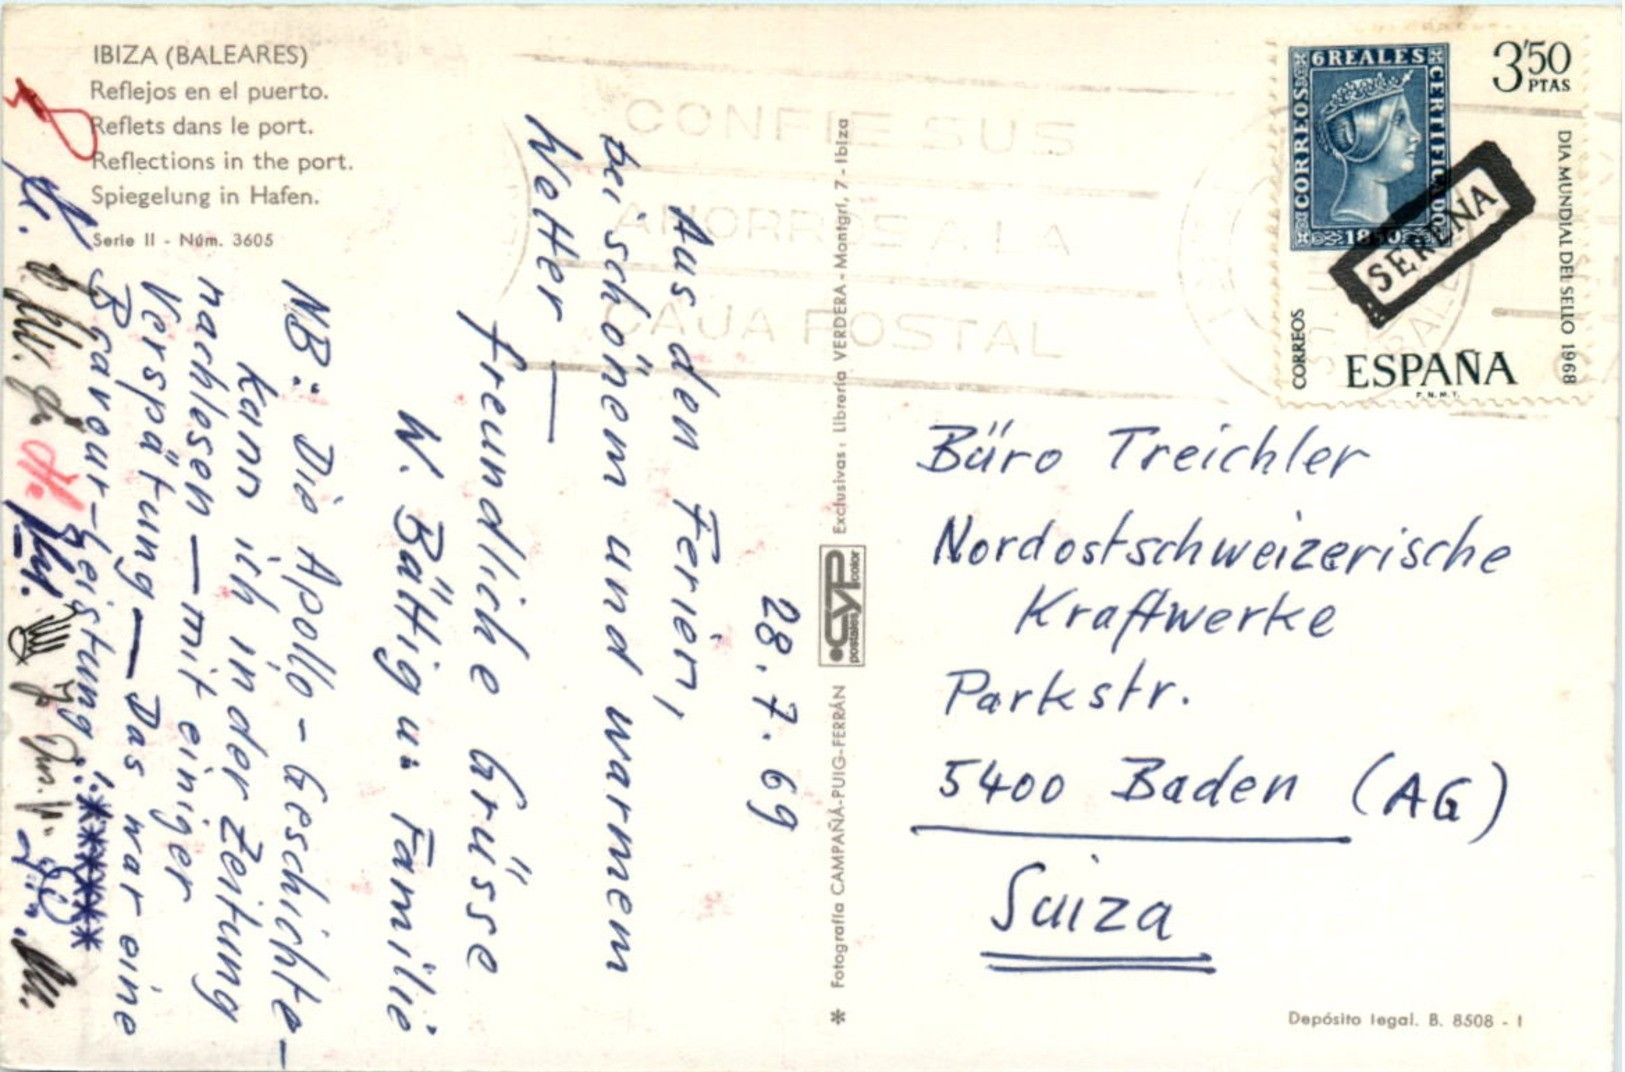 IBIZA (BALEARES)
Reflejos en el puerto.
Reflets dans le port.
Reflections in the port.
Spiegelung in Hafen.
Serie II - Núm. 3605
28. 7. 69
Aus den Ferien,
bei schönem und warmem
Wetter —
freundliche Grüsse
W. Bättig u. Familie
NB: Die Apollo-Geschichte-
kann ich in der Zeitung
nachlesen — mit einiger
Verspätung — Das war eine
Bravour-leistung!
Exclusivas: Librería VERDERA - Montgrí, 7 - Ibiza
CYP
postales color
* Fotografía CAMPAÑÁ-PUIG-FERRÁN
CONFIE SUS
AHORROS A LA
CAJA POSTAL
6 REALES
CORREOS
CERTIFICADO
1850
3'50
PTAS
DIA MUNDIAL DEL SELLO 1968
CORREOS
ESPAÑA
F.N.M.T.
SERENA
Büro Treichler
Nordostschweizerische
Kraftwerke
Parkstr.
5400 Baden (AG)
Suiza
Depósito legal. B. 8508 - I